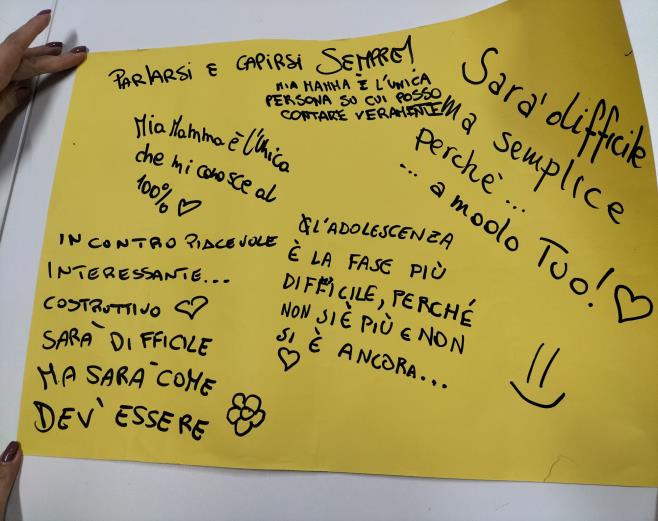 PARLARSI E CAPIRSI SEMPRE!
MIA MAMMA È L'UNICA
PERSONA SU CUI POSSO
CONTARE VERAMENTE
Sarà difficile
ma semplice
perchè...
... a modo Tuo!
Mia Mamma è l'unica
che mi conosce al
100%
INCONTRO PIACEVOLE
INTERESSANTE...
COSTRUTTIVO
SARÀ DIFFICILE
MA SARÀ COME
DEV'ESSERE
L'ADOLESCENZA
È LA FASE PIÙ
DIFFICILE, PERCHÉ
NON SI È PIÙ E NON
SI È ANCORA...